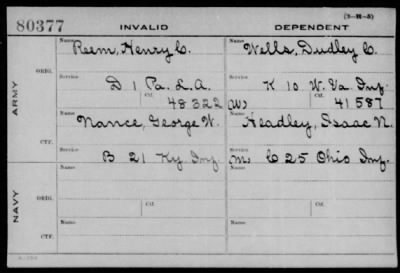 (3-H-5)
80377 INVALID DEPENDENT
Name Reem, Henry C. Name Wells, Dudley C.
ARMY
ORIG.
Service D 1 Pa. L.A. Service K 10 W. Va Inf.
Ctf. 48322 (W) Ctf. 41587
Name Nance, George W. Name Headley, Isaac N.
CTF.
Service B 21 Ky. Inf. Service M. C 25 Ohio Inf.
NAVY
Name Name
ORIG.
Service Ctf. Service Ctf.
Name Name
CTF.
Service Service